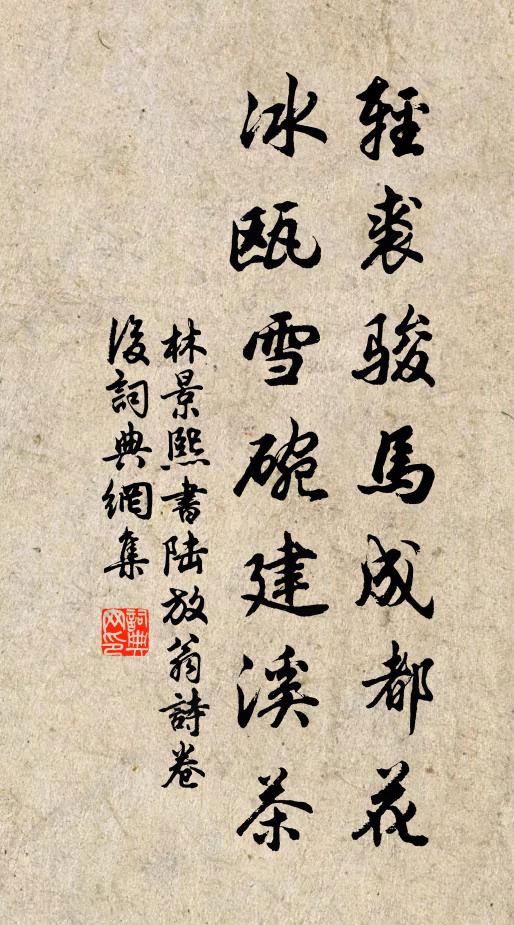 輕裘駿馬成都花
冰甌雪碗建溪茶
林景熙書陸放翁詩卷
後詞典網集
詞典
网印